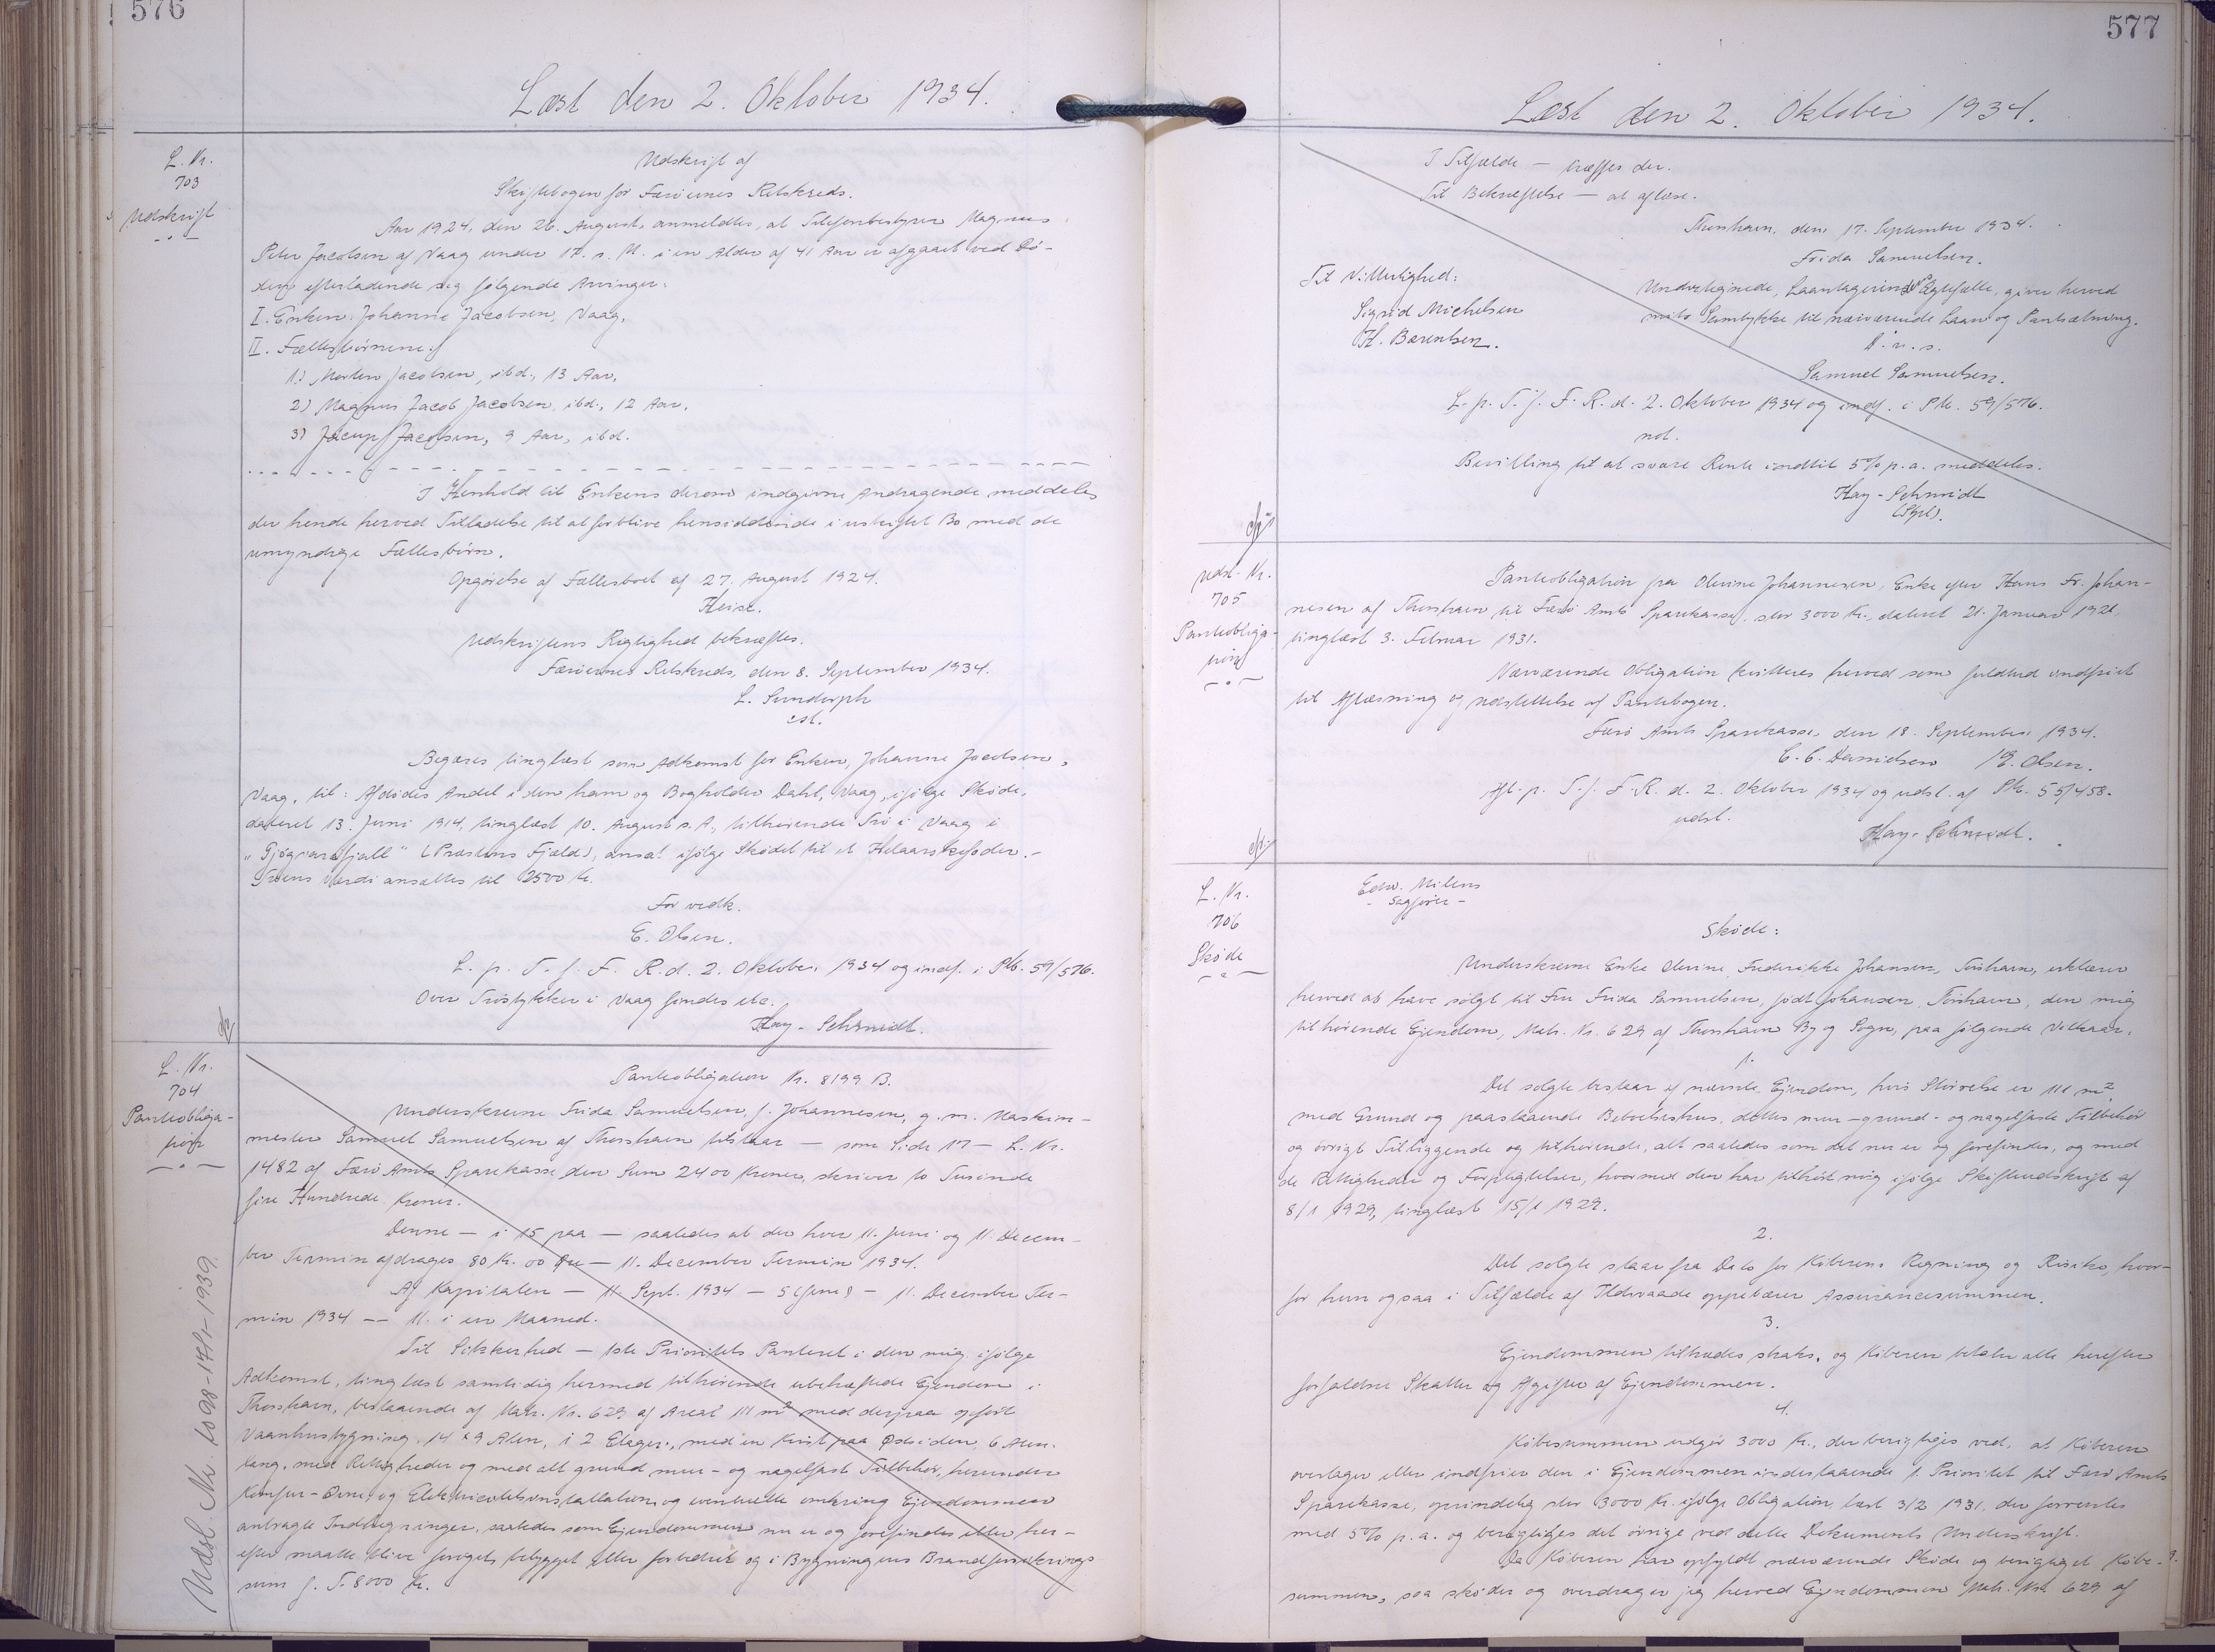 576
Læst den 2. Oktober 1934.
L. Nr.
703
Udskrift
Udskrift af
Skiftebogen for Færøernes Retskreds.
Aar 1924, den 26. August, anmeldtes, at Telefonbestyrer Magnus
Peter Jacobsen af Vaag under 17. s. M. i en Alder af 41 Aar er afgaaet ved Dø-
den efterladende sig følgende Arvinger:
I. Enken: Johanne Jacobsen, Vaag,
II. Fællesbørnene:
1) Morten Jacobsen, ibd., 13 Aar,
2) Magnus Jacob Jacobsen, ibd., 12 Aar,
3) Jacup Jacobsen, 9 Aar, ibd.
I Henhold til Enkens derom indgivne Andragende meddeles
der hende herved Tilladelse til at forblive hensiddende i uskiftet Bo med de
umyndige Fællesbørn.
Opgørelse af Fællesboet af 27. August 1924.
Heise.
Udskriftens Rigtighed bekræftes.
Færøernes Retskreds, den 8. September 1934.
L. Sundorph
cst.
Begæres tinglæst som Adkomst for Enken, Johanne Jacobsen,
Vaag, til: Afdødes Andel i den ham og Bogholder Dahl, Vaag, ifølge Skøde,
dateret 13. Juni 1914, tinglæst 10. August s. A., tilhørende Trø i Vaag i
(Præstens Fjæld), ansat ifølge Skødet til et Helaarskofoder.-
Trøens Værdi ansættes til 2500 Kr.
For vedk.
E. Olsen.
L. p. T. f. F. R. d. 2. Oktober 1934 og indf. i Pb. 59/576.
Over Trøstykker i Vaag findes etc.
Hay-Schmidt.
L. Nr.
704
Pantobliga-
tion
Udsl. Nr. 1098-17/1-1939.
Pantobligation Nr. 8199 B.
Underskrevne Frida Samuelsen, f. Johannesen, g. m. Maskin-
mester Samuel Samuelsen af Thorshavn tilstaar — som Side 17 — L. Nr.
1482 af Færø Amts Sparekasse den Sum 2400 Kroner, skriver to Tusinde
fire Hundrede Kroner.
Denne — i 15 paa — saaledes at der hver 11. Juni og 11. Decem-
ber Termin afdrages 80 Kr. 00 Øre — 11. December Termin 1934.
Af Kapitalen — 11. Sept. 1934 — 5 (fem) — 11. December Ter-
min 1934 — 11. i en Maaned.
Til Sikkerhed — 1ste Prioritets Panteret i den mig ifølge
Adkomst, tinglæst samtidig hermed tilhørende ubehæftede Ejendom i
Thorshavn, bestaaende af Matr. Nr. 629 af Areal 111 m² med derpaa opført
Vaanhusbygning, 14 x 9 Alen, i 2 Etager, med en Kvist paa Østsiden, 6 Alen.
lang, med Rettigheder og med alt grund mur- og nagelfast Tilbehør, herunder
Komfur-Ovne, og Elektricitetsinstallation og eventuelle omkring Ejendommen
anbragte Indhegninger, saaledes som Ejendommen nu er og forefindes eller her-
efter maatte blive forøget, bebygget eller forbedret og i Bygningens Brandforsikrings
sum f. T. 8000 Kr.
577
Læst den 2. Oktober 1934.
I Tilfælde — træffes der.
Til Bekræftelse — at aflæse.
Thorshavn, den 17. September 1934.
Frida Samuelsen.
Til Vitterlighed:
Sigrid Michelsen
H. Berentsen.
Undertegnede, Laantagerindens Ægtefælle, giver herved
mit Samtykke til nærværende Laan og Pantsætning.
D. u. s.
Samuel Samuelsen.
L. p. T. f. F. R. d. 2. Oktober 1934 og indf. i Pb. 59/576.
not.
Bevilling til at svare Rente indtil 5% p. a. meddeles.
Hay-Schmidt
Udsl. Nr.
705
Pantobliga-
tion
Pantobligation fra Olevine Johannesen, Enke efter Hans Fr. Johan-
nesen af Thorshavn til Færø Amts Sparekasse, stor 3000 Kr., dateret 21. Januar 1921
tinglæst 3. Februar 1931.
Nærværende Obligation kvitteres herved som fuldtud indfriet
til Aflæsning og Udslettelse af Pantebogen.
Færø Amts Sparekasse, den 18. September 1934.
C. C. Danielsen / E. Olsen.
Afl. p. T. f. F. R. d. 2. Oktober 1934 og udsl. af Pb. 55/458.
udsl.
Hay-Schmidt.
L. Nr.
706
Skøde
Edw. Milens
- Sagfører -
Skøde:
Underskrevne Enke Olevine Frederikke Johansen, Torshavn, erklærer
herved at have solgt til Fru Frida Samuelsen, født Johansen, Torshavn, den mig
tilhørende Ejendom, Matr. Nr. 629 af Thorshavn By og Sogn, paa følgende Vilkaar.
1.
Det solgte bestaar af nævnte Ejendom, hvis Størrelse er 111 m²,
med Grund og paastaaende Beboelseshus, dettes mur-grund- og nagelfaste Tilbehør
og øvrigt Tilliggende og tilhørende, alt saaledes som det nu er og forefindes, og med
de Rettigheder og Forpligtelser, hvormed den har tilhørt mig ifølge Skifteudskrift af
8/1 1929, tinglæst 15/1 1929.
2.
Det solgte staar fra Dato for Køberens Regning og Risiko, hvor-
for hun ogsaa i Tilfælde af Ildsvaade oppebærer Assurancesummen.
3.
Ejendommen tiltrædes straks, og Køberen betaler alle herefter
forfaldne Skatter og Afgifter af Ejendommen.
4.
Købesummen udgør 3000 Kr., der berigtiges ved, at Køberen
overtager eller indfrier den i Ejendommen indestaaende 1. Prioritet til Færø Amts
Sparekasse, oprindelig stor 3000 Kr. ifølge Obligation, læst 3/2 1931, der forrentes
med 5% p. a. og berigtiges det øvrige ved dette Dokuments Underskrift.
Da Køberen har opfyldt nærværende Skøde og berigtiget Købe-
summen, saa skøder og overdrager jeg herved Ejendommen Matr. Nr. 629 af